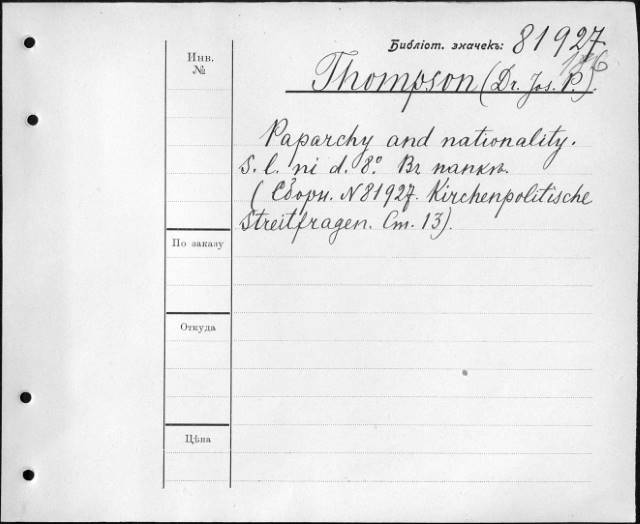 Библіот. значекъ: 81927
186
Инв.
№
Thompson (Dr. Jos. P.).
Paparchy and nationality.
S. l. ni d. 8º. Въ папкѣ.
(Сборн. N 81927. Kirchenpolitische
Streitfragen. Ст. 13).
По заказу
Откуда
Цѣна